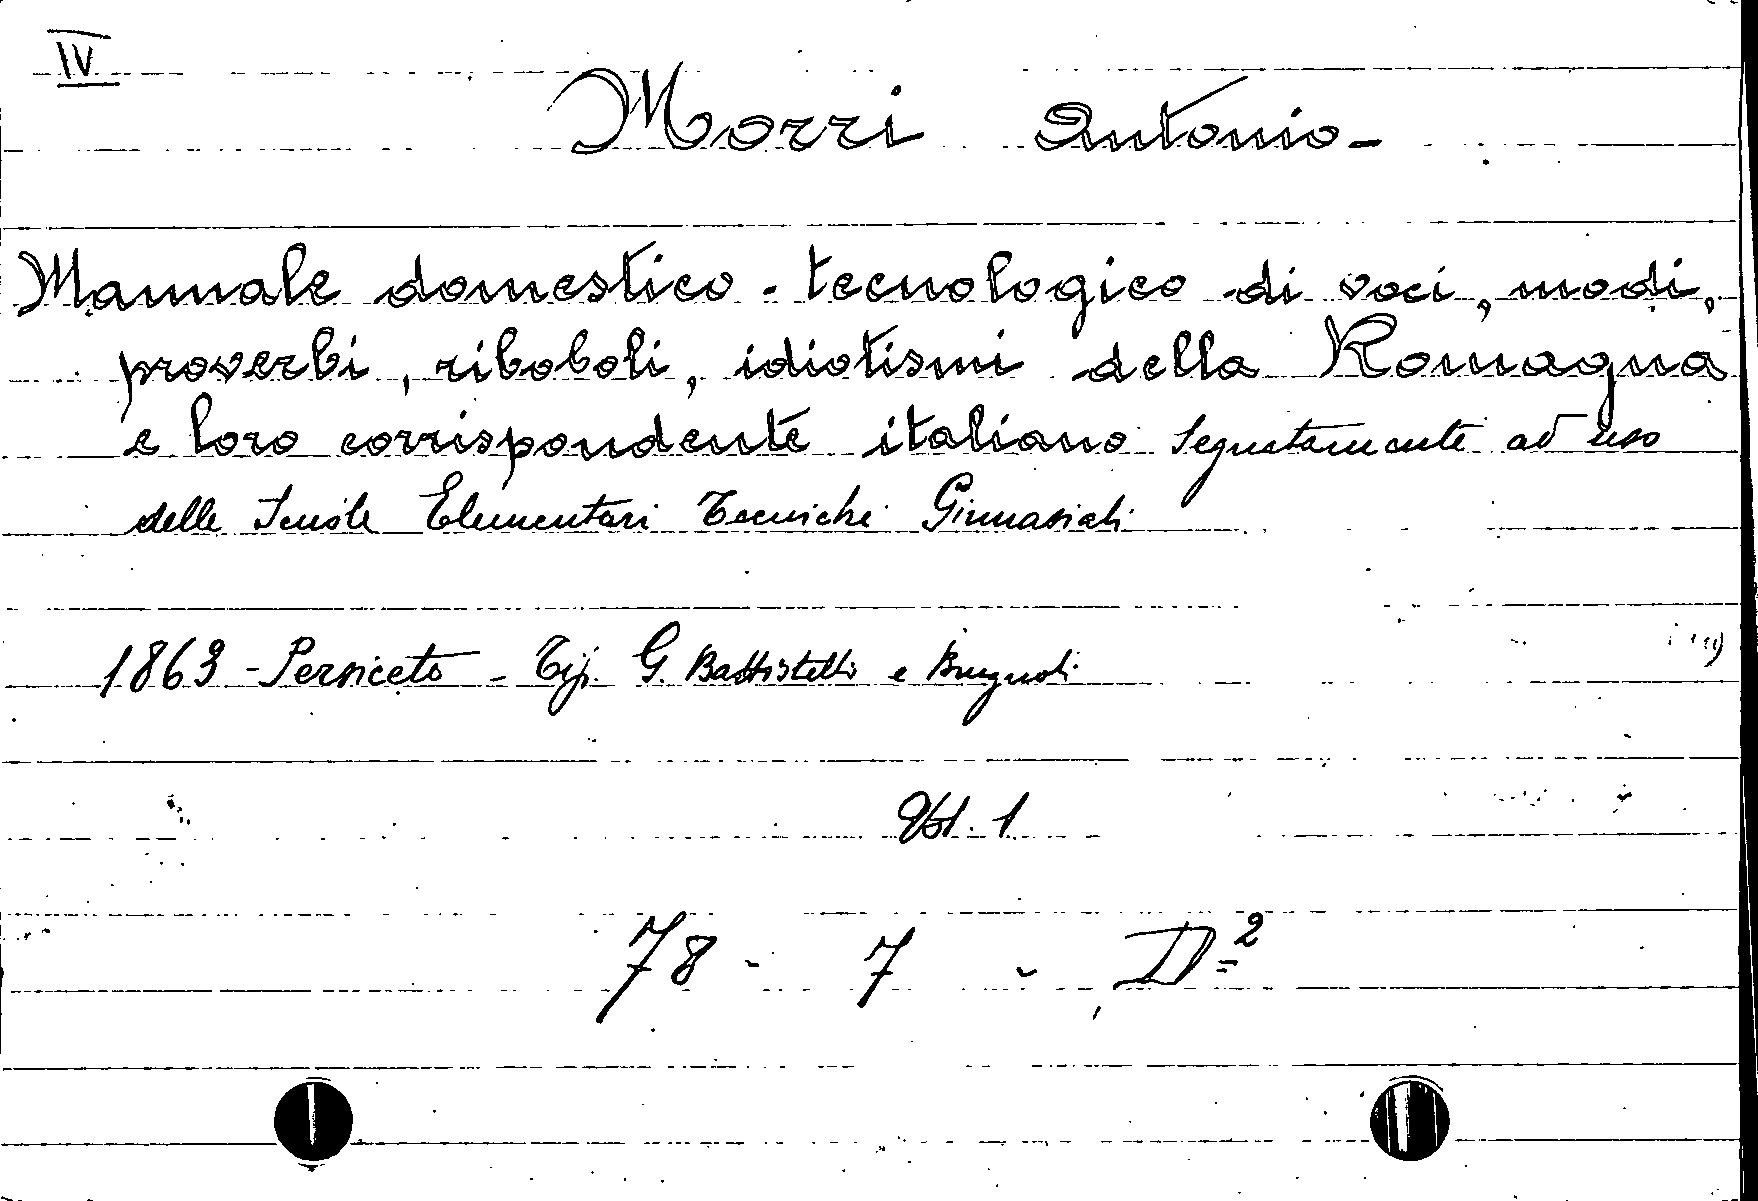 IV
Morri Antonio-
Manuale domestico - tecnologico di voci, modi,
proverbi, riboboli, idiotismi della Romagna
e loro corrispondente italiano segnatamente ad uso
delle Scuole Elementari Tecniche Ginnasiali
1863 - Persiceto - Tip. G. Battistelli e Brugnoli
Vol. 1
78 - 7 - D²